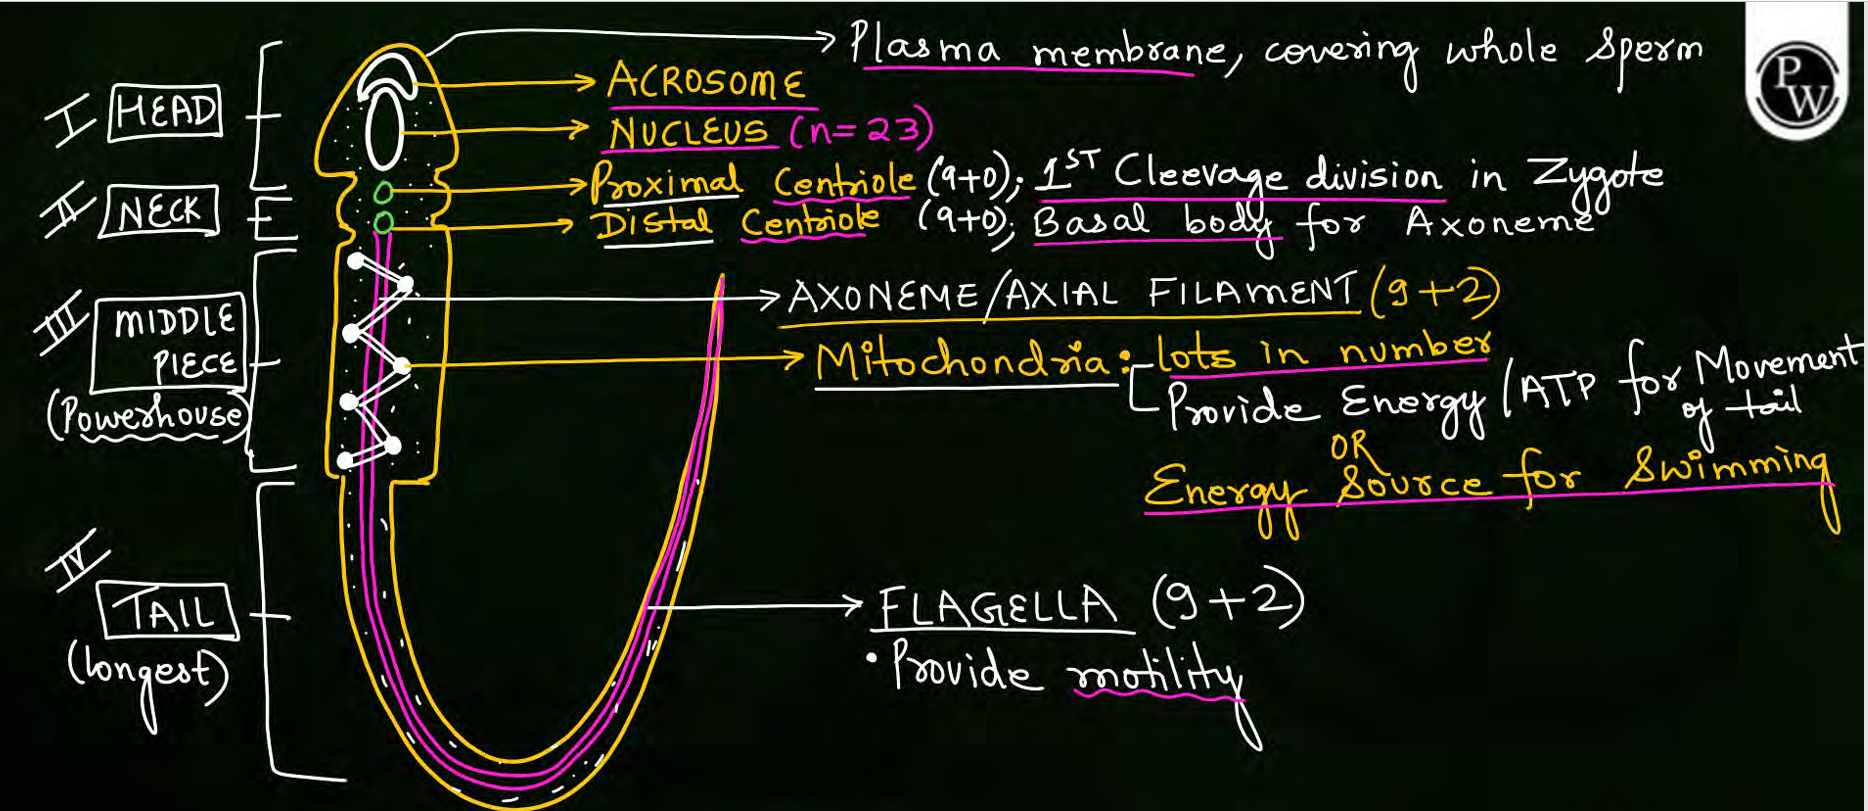 Plasma membrane, covering whole sperm
PW
I HEAD
ACROSOME
NUCLEUS (n=23)
II NECK
Proximal Centriole (9+0); 1ST Cleevage division in Zygote
Distal Centriole (9+0); Basal body for Axoneme
III MIDDLE
PIECE
(Powerhouse)
AXONEME/AXIAL FILAMENT (9+2)
Mitochondria: lots in number
Provide Energy/ATP for Movement
of tail
OR
Energy Source for Swimming
IV
TAIL
(longest)
FLAGELLA (9+2)
• Provide motility